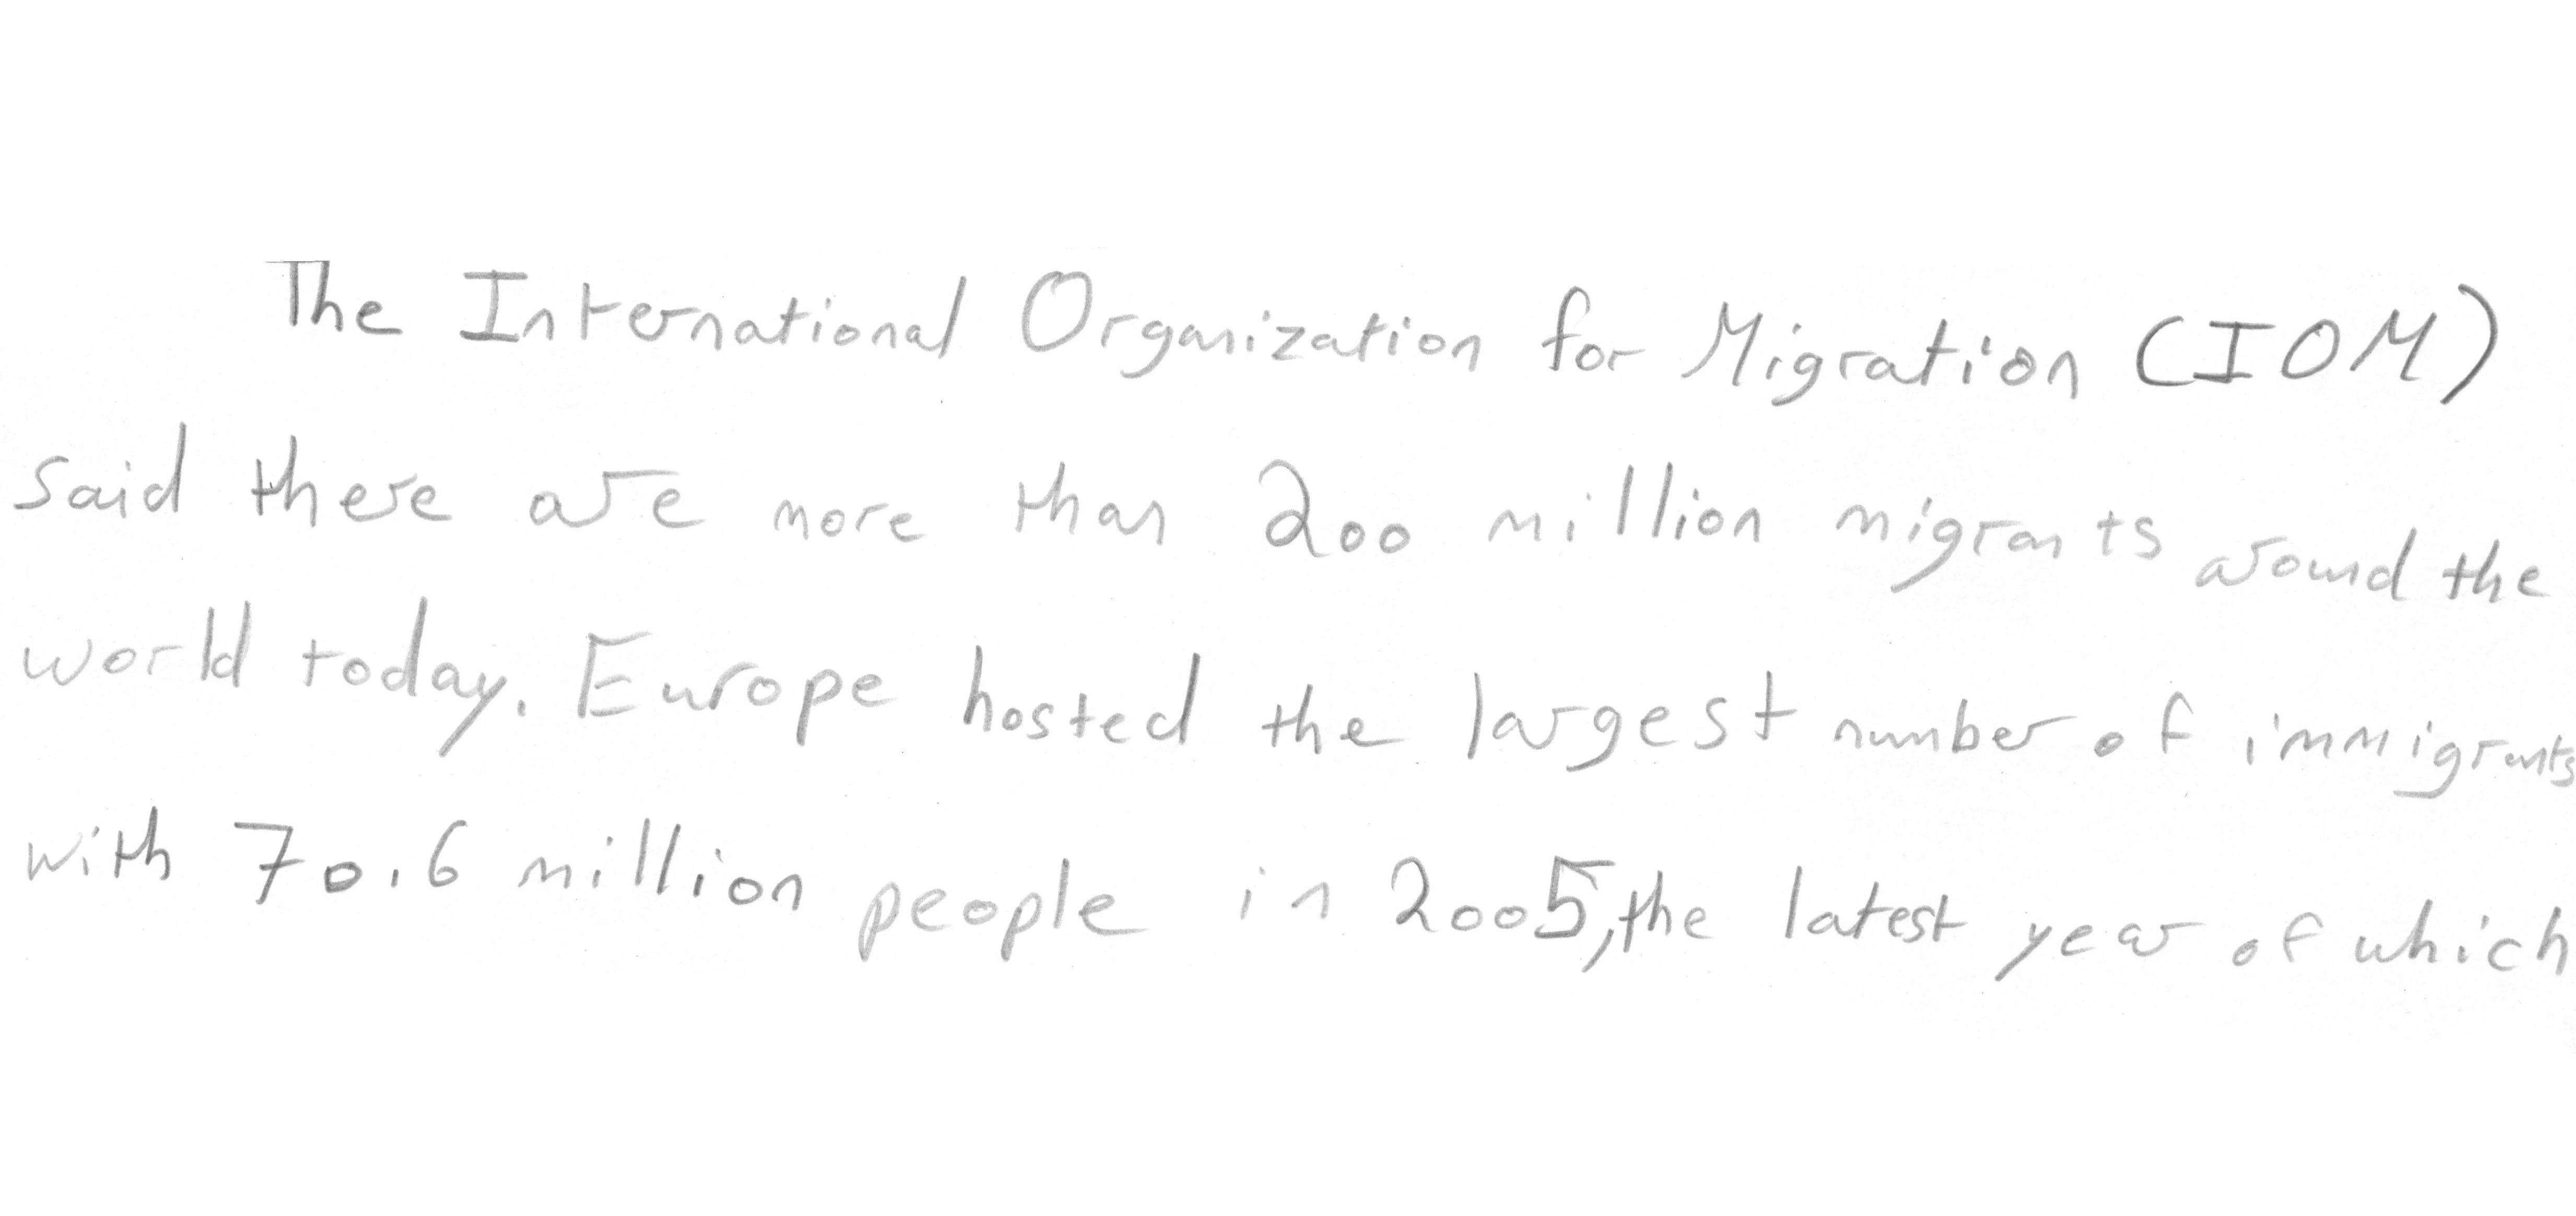 The International Organization for Migration (IOM)
said there are more than 200 million migrants around the
world today. Europe hosted the largest number of immigrants
with 70.6 million people in 2005, the latest year of which